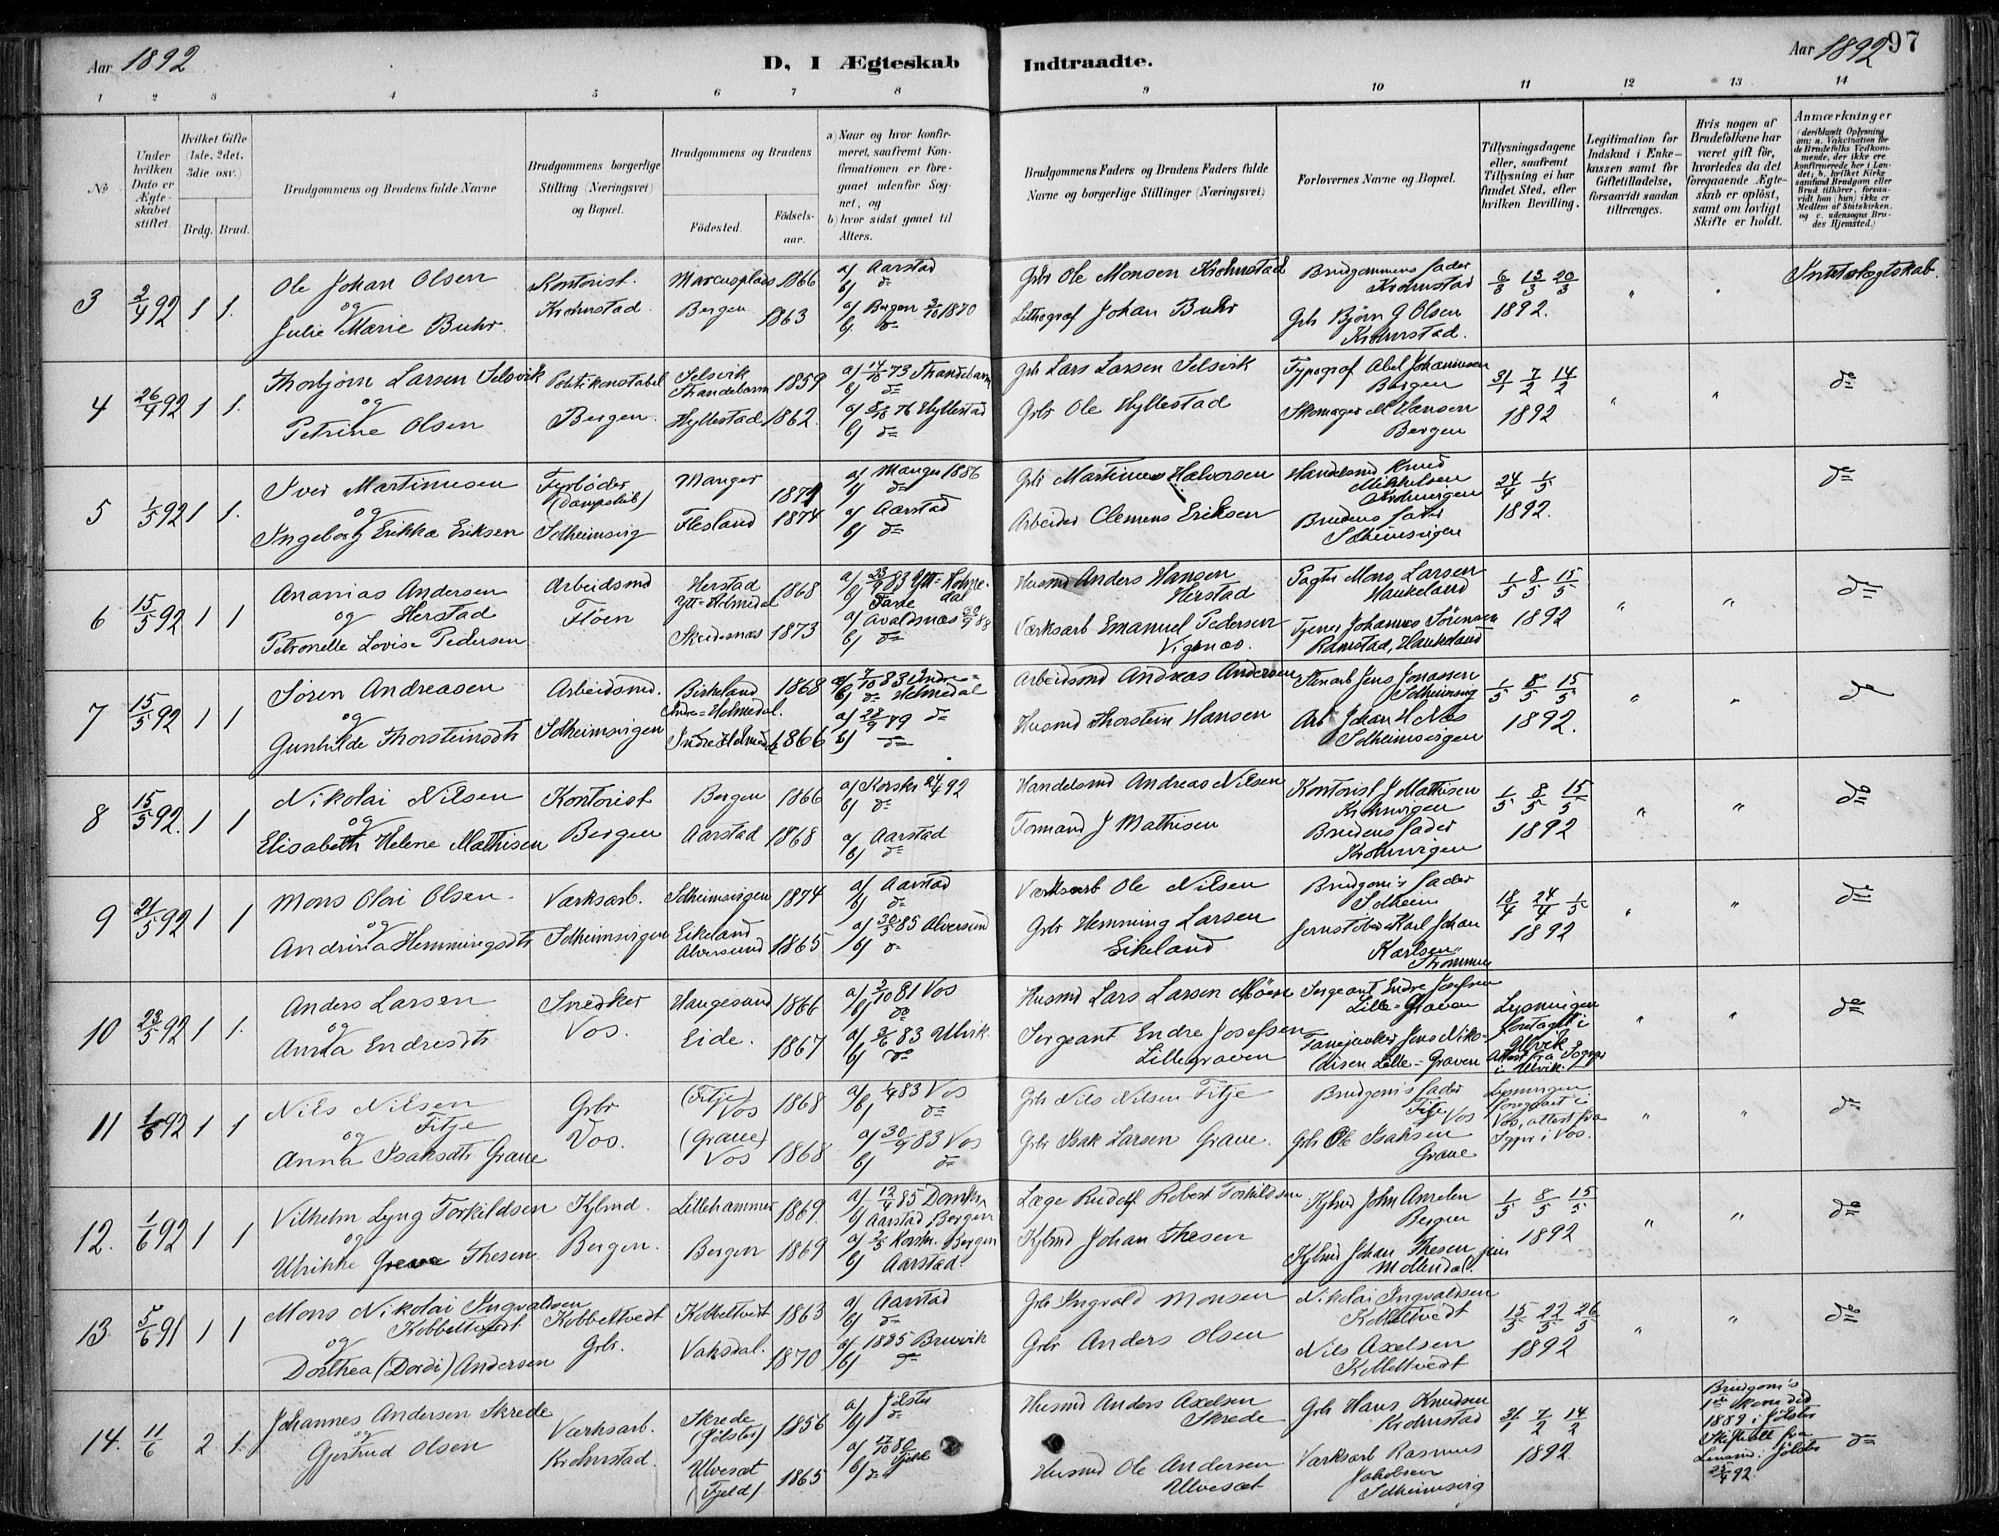 Aar 1892
D, I Ægteskab Indtraadte.
Aar 1892
97
1 2 3 4 5 6 7 8 9 10 11 12 13 14
No
Under hvilken Dato er Ægteskabet stiftet.
Hvilket Gifte (1ste, 2det, 3die osv.)
Brdg. Brud.
Brudgommens og Brudens fulde Navne
Brudgommens borgerlige Stilling (Næringsvei) og Bopæl.
Brudgommens og Brudens
Fødested. Fødselsaar.
a) Naar og hvor konfirmeret, saafremt Konfirmationen er foregaaet udenfor Sognet, og
b) hvor sidst gaaet til Alters.
Brudgommens Faders og Brudens Faders fulde Navne og borgerlige Stillinger (Næringsvei)
Forlovernes Navne og Bopæl.
Tillysningsdagene eller, saafremt Tillysning ei har fundet Sted, efter hvilken Bevilling.
Legitimation for Indskud i Enkekassen samt for Giftetilladelse, forsaavidt saadan tiltrænges.
Hvis nogen af Brudefolkene har været gift før, hvorledes da det foregaaende Ægteskab er opløst, samt om lovligt Skifte er holdt.
Anmærkninger
(deriblandt Oplysning om: a. Vaccination for de Brudefolks Vedkommende, der ikke ere konfirmerede her i Landet; b. hvilket Kirkesamfund Brudgom eller Brud tilhører, forsaavidt han (hun) ikke er Medlem af Statskirken, og c. udensogns Brudes Hjemsted.)
3 2/4 92 1 1.
Ole Johan Olsen
og
Julie Marie Buhr.
Kontorist.
Krohnstad.
Marcusplads 1866
Bergen 1863
a) Aarstad
b) do
a) Bergen 2/10 1870
b) do
Gbr Ole Monsen Krohnstad
Lithograf Johan Buhr
Brudgommens fader
Krohnstad
Gbr Bjørn J Olsen
Krohnstad.
6/3 13/3 20/3
1892.
" "
Intet slegtskab.
4 26/4 92 1 1.
Thorbjørn Larsen Selsvik
og
Petrine Olsen
Politikonstabel
Bergen.
Selsvik
Strandebarm 1859
Hyllestad 1862.
a) 14/10 73 Strandebarm
b) do
a) 8/10 76 Hyllestad
b) do
Gbr Lars Larsen Selsvik
Gbr Ole Hyllestad
Typograf Abel Johannesen
Bergen
Skomager M Hansen
Bergen
31/1 7/2 14/2
1892
" "
do
5 1/5 92 1 1.
Iver Martinusen
og
Ingeborg Erikka Eriksen
Fyrbøder
(Dampskib)
Solheimsvig
Manger 1871
Flesland 1874
a) Manger 1886
b) do
a) Aarstad
b) do
Gbr Martinus Halvorsen
Arbeider Clemens Eriksen
Handelsmd Knud
Mikkelsen
Krohnvigen
Brudens fader
Solheimsvigen
24/4 1/5
1892.
do
6 15/5 92 1 1
Ananias Andersen
og Herstad
Petronelle Lovise Pedersen
Arbeidsmd
Fløen
Herstad
Ytt=Holmedal 1868
Skudesnæs 1873
a) 23/9 83 Ytt=Holmedal
b) Fane
a) Avaldsnæs 88
b) do
Husmd Anders Hansen
Herstad
Værksarb Emanuel Pedersen
Vignæs.
Pagter Mons Larsen
Haukeland
Tjener Johannes Sørensen
Ramstad, Haukeland
1/5 8/5 15/5
1892
" "
do
7 15/5 92 1 1
Søren Andreasen
og
Gunhilde Thorsteinsdtr
Arbeidsmd.
Solheimsvigen
Birkeland 1868
Indre=Holmedal.
Indre Holmedal 1866
a) 7/10 83 Indre=
b) do Holmedal
a) 28/9 79 do
b) do
Arbeidsmd Andreas Andersen
Husmd Thorstein Hansen
Stenarb Jens Jonassen
Solheimsvig
Arb Johan H Næs
Solheimsvigen
1/5 8/5 15/5
1892.
" "
do
8 15/5 92. 1 1
Nikolai Nilsen
og
Elisabeth Helene Mathisen
Kontorist
Bergen
Bergen 1866
Aarstad 1868
a) Korskr 24/4 92
b) do
a) Aarstad
b) do
Handelsmd Andreas Nilsen
Formand J Mathisen
Kontorist J Mathisen
Krohnvigen
Brudens fader
Krohnvigen
1/5 8/5 15/5
1892
" "
do
9 21/5 92 1 1
Mons Olai Olsen.
og
Andrina Hemmingsdtr
Værksarb.
Solheimsvigen
Solheimsvigen 1874
Eikeland
Alversund 1865
a) Aarstad
b) do
a) 30/5 85 Alversund
b) do
Værksarb Ole Nilsen
Gbr Hemming Larsen
Eikeland
Brudgom's fader
Solheim
Jernstøber Karl Johan
Karlsen
Strømmen
18/4 24/4 1/5
1892
" "
do
10 23/5 92 1 1.
Anders Larsen
og
Anna Endresdtr
Snedker
Vos.
Haugesund 1866
Eide. 1867
a) 2/10 81 Vos
b) do
a) 3/6 83 Ulvik.
b) do
Husmd Lars Larsen Møen
Sergeant Endre Josefsen
Lillegraven
Sergeant Endre Josefsen
Lille=Graven
Fanejunker Jens Nikolaisen Lille=Graven
Lysningen
foretaget i
Ulvik
Attest fra Sogpr
i Ulvik.
" "
do
11 1/6 92 1 1
Nils Nilsen
og Fitje
Anna Isaksdtr Graue
Gbr
Vos.
(Fitje)
Vos 1868
(Graue)
Vos 1868
a) 1/4 83 Vos
b) do
a) 30/9 83 Vos
b) do
Gbr Nils Nilsen Fitje
Gbr Isak Larsen Graue.
Brudgom's fader
Fitje Vos
Gbr Ole Isaksen
Graue
Lysningen
foregaaet i
Vos, attest fra
Sogpr i Vos.
" "
do
12. 1/6 92 1 1
Vilhelm Lyng Torkildsen
og
Ulrikke Greve Thesen.
Kjbmd.
Bergen.
Lillehammer 1869.
Bergen 1869
a) 12/4 85 Domkr.
b) Aarstad Bergen
a) 3/5 Korskr. Bergen
b) Aarstad.
Læge Rudolf Robert Torkildsen
Kjbmd Johan Thesen
Kjbmd John Amelen
Bergen
Kjbmd Johan Thesen jun
Møllendal.
1/5 8/5 15/5
1892
" "
do
13 5/6 91 1 1
Mons Nikolai Ingvaldsen
og Kobbeltvedt
Dorthea (Dordi) Andersen
Kobbeltvedt
Gbr.
Kobbeltvedt 1863
Vaksdal. 1870
a) Aarstad
b) do
a) 1885 Bruvik
b) do
Gbr Ingvald Monsen
Gbr Anders Olsen
Nikolai Ingvaldsen
Kobbeltvedt
Nils Axelsen
Kobbeltvedt
15/5 22/5 26/5
1892
" "
do
14. 11/6 2 1.
Johannes Andersen Skrede
og
Gjertrud Olsen
Værksarb.
Krohnstad.
Skrede
(Jølster) 1856
Ulvesæt
(Fjeld) 1865
a) Jølster
b) do
a) 17/10 80
b) do Fjeld
Husmd Anders Axelsen
Skrede
Husmd Ole Andersen
Ulvesæt
Gbr Hans Knudsen
Krohnstad
Værksarb Rasmus
Jakobsen
Solheimsvig
31/1 7/2 14/2
1892.
Brudgom's
1ste Kone død
1889 i Jølster
Skifteatt fra
Lensmd i Jølster
25/4 92.
do